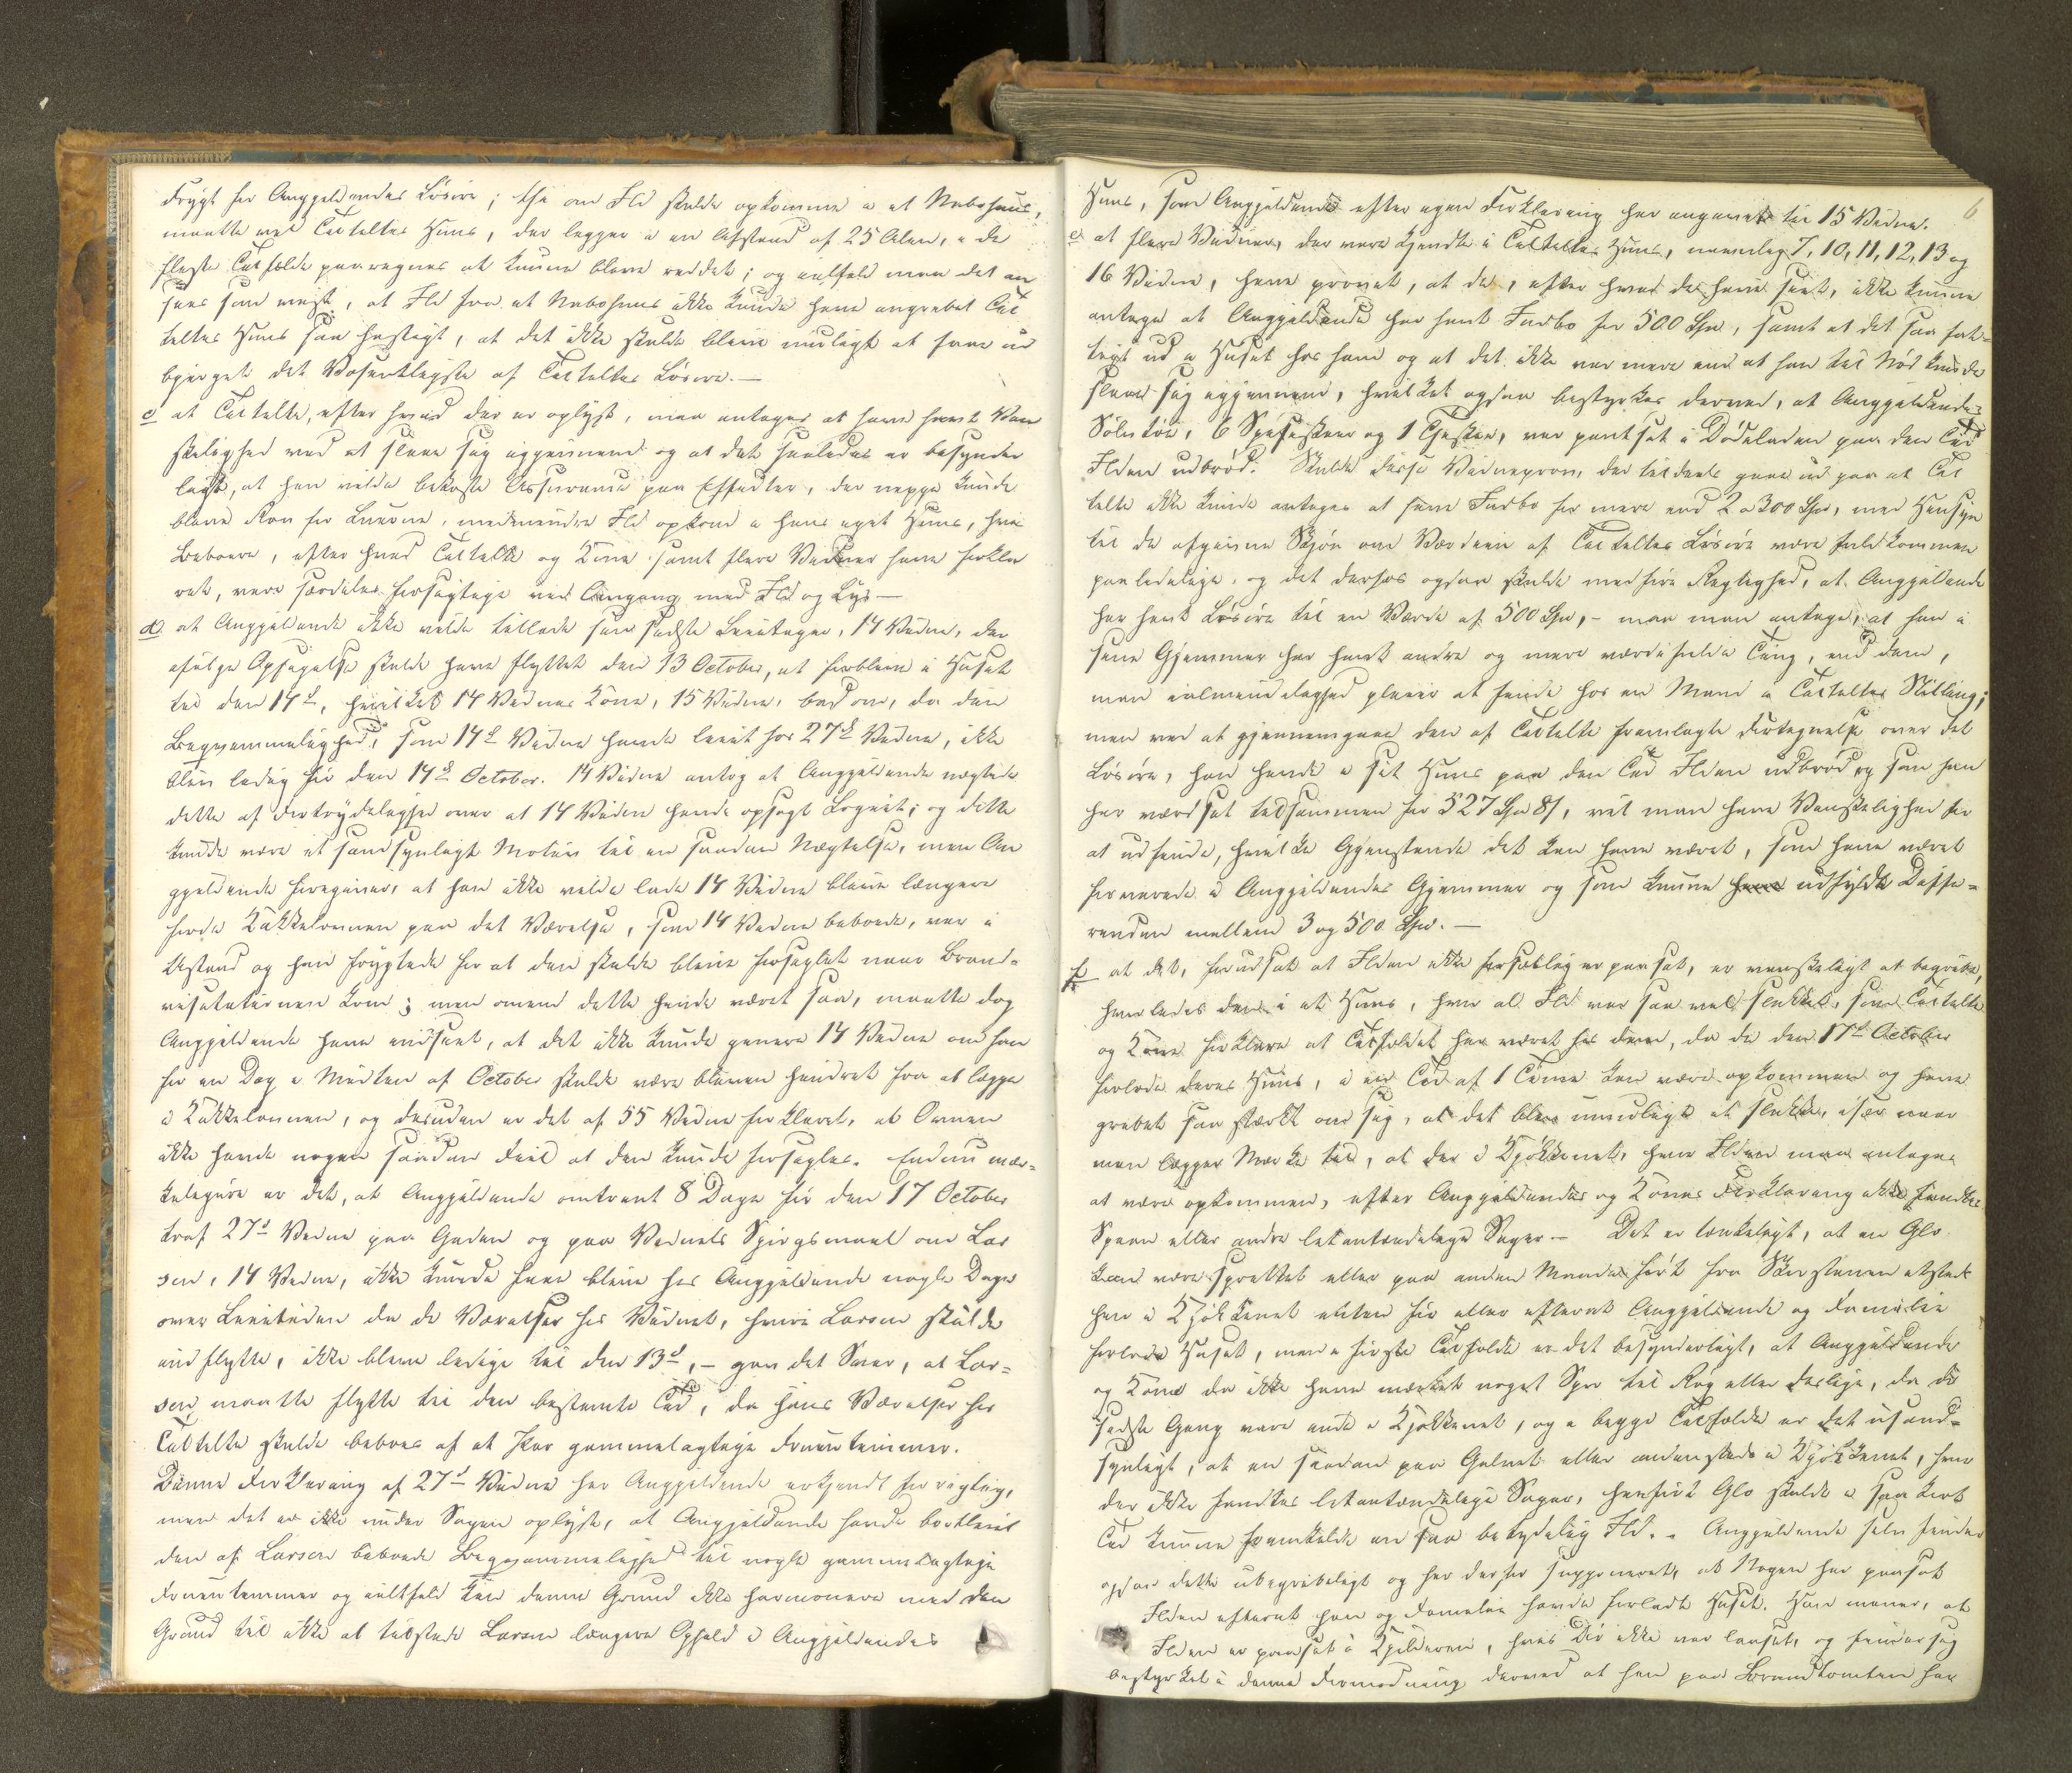 Frygt for Anggjeldendes Løsøre; thi om Ild skulde opkomme i et Nabohuus,
maatte vel Tiltaltes Huus, der ligger i en Afstand af 25 Alen, i de
fleste Tilfælde paaregnes at kunne blive reddet; og ialfald maa det an
sees som vist, at Ild fra et Nabohuus ikke kunde have angrebet Til
taltes Huus saa hastigt, at det ikke skulde blive muligt at faae ud
bjerget det Væsentligste af Tiltaltes Løsøre. —
c at Tiltalte, efter hvad der er oplyst, maa antages at have havt Van
skelighed ved at slaae sig igjennem og at det saaledes er besynder
ligt, at han vilde bekoste Assurance paa Effecter, der neppe kunde
blive Rov for Luerne, medmindre Ild opkom i hans eget Huus, hvis
Beboere, efter hvad Tiltalte og Kone samt flere Vidner have forkla
ret, vare særdeles forsigtige ved Omgang med Ild og Lys —
d at Anggjeldende ikke vilde tillade sin sidste Leietager, 14 Vidne, der
ifølge Opsigelse skulde have flyttet den 13 October, at forblive i Huset
til den 14de, hvilket 14 Vidnes Kone, 15 Vidne, bad om, da den
Beqvemmelighed, som 14de Vidne havde leiet hos 27de Vidne, ikke
blev ledig før den 14de October. 14 Vidne antog at Anggjeldende nægtede
dette af Fortrydelighed over at 14 Vidne havde opsagt Logiet; og dette
kunde være et sandsynligt Motiv til en saadan Nægtelse, men An
gjeldende foregiver, at han ikke vilde lade 14 Vidne blive længere
fordi Kakkelovnen paa det Værelse, som 14 Vidne beboede, var i
Ustand og han frygtede for at den skulde blive forseglet naar Brand-
visitationen kom; men omend dette havde været saa, maatte dog
Anggjeldende have indseet, at det ikke kunde genere 14 Vidne om han
for en Dag i Midten af October skulde være bleven hindret fra at lægge
i Kakkelovnen, og desuden er det af 55 Vidne forklaret, at Ovnen
ikke havde nogen saadan Feil at den kunde forsegles. Endnu mær-
keligere er det, at Anggjeldende omtrent 8 Dage før den 17 October
traf 27de Vidne paa Gaden og paa Vidnets Spørgsmaal om Lar
sen, 14 Vidne, ikke kunde faae blive hos Anggjeldende nogle Dage
over Leietiden da de Værelser hos Vidnet, hvori Larsen skulde
indflytte, ikke bleve ledige til den 13de, – gav det Svar, at Lar=
sen maatte flytte til den bestemte Tid, da hans Værelser hos
Tiltalte skulde beboes af et Par gammelagtige Fruentimmer.
Denne Forklaring af 27de Vidne har Anggjeldende erkjendt for rigtig,
men det er ikke under Sagen oplyst, at Anggjeldende havde bortleiet
den af Larsen beboede Beqvemmelighed til nogle gammelagtige
Fruentimmer og ialtfald kan denne Grund ikke harmonere med den
Grund til ikke at tilstede Larsen længere Ophold i Anggjeldendes
6
Huus, som Anggjeldende efter egen Forklaring har angivet til 15 Vidne.
e at flere Vidner, der vare kjendte i Tiltaltes Huus, navnlig 7, 10, 11, 12, 13 og
16 Vidne, have provet, at de, efter hvad de have seet, ikke kunne
antage at Anggjeldende har havt Indbo for 500 Spd, samt at det saa fat-
tigt ud i Huset hos ham og at det ikke var mere end at han til Nød kunde
slaae sig igjennem, hvilket ogsaa bestyrkes derved, at Anggjeldendes
Sølvtøi, 6 Spiseskeer og 1 Theskee, var pantsat i Dødeladen paa den Tid
Ilden udbrød. Skulde disse Vidneprov, der tildeels gaae ud paa at Til
talte ikke kunde antages at have Indbo for mere end 2 a 300 Spd, med Hensyn
til de afgivne Skjøn om Værdien af Tiltaltes Løsøre være fuldkommen
paalidelige, og det derfor ogsaa skulde medføre Rigtighed, at Anggjeldende
har havt Løsøre til en Værdi af 500 Spd, – maa man antage, at han i
sine Gjemmer har havt andre og mere værdifulde Ting, end dem,
man ialmindelighed pleier at finde hos en Mand i Tiltaltes Stilling;
men ved at gjennemgaae den af Tiltalte fremlagte Fortegnelse over det
Løsøre, han havde i sit Huus paa den Tid Ilden udbrød og som han
har værdsat tilsammen for 527 Spd 8 s, vil man have Vanskelighed for
at udfinde, hvilke Gjenstande det kan have været, som have været
forvarede i Anggjeldendes Gjemmer og som kunne have udfyldt Diffe=
rencen mellem 3 og 500 Spd. —
f at det, forudsat at Ilden ikke forsætlig er paasat, er vanskeligt at begribe,
hvorledes den i et Huus, hvor al Ild var saa vel slukket, som Tiltalte
og Kone forklare at Tilfældet har været hos dem, da de den 17de October
forlode deres Huus, i en Tid af 1 Time kan være opkommen og have
grebet saa stærkt om sig, at det blev umuligt at slukke, især naar
man lægger Mærke til, at der i Kjøkkenet, hvor Ilden maa antages
at være opkommen, efter Anggjeldendes og Kones Forklaring ikke fandtes
Spaan eller andre letantændelige Sager. — Det er tænkeligt, at en Glo
kan være sprettet eller paa anden Maade ført fra Skorstenen etsteds
hen i Kjøkkenet enten før eller efterat Anggjeldende og Familie
forlode Huset, men i første Tilfælde er det besynderligt, at Anggjeldende
og Kone da ikke have mærket noget Spor til Røg eller deslige, da de
sidste Gang vare inde i Kjøkkenet, og i begge Tilfælde er det usand-
synligt, at en saadan paa Gulvet eller andensteds i Kjøkkenet, hvor
der ikke fandtes letantændelige Sager, henført Glo skulde i saa kort
Tid kunne fremkalde en saa betydelig Ild. – Anggjeldende selv finder
ogsaa dette ubegribeligt og har derfor supponeret, at Nogen har paasat
Ilden efterat han og Familie havde forladt Huset. Han mener, at
Ilden er paasat i Kjelderen, hvis Dør ikke var laaset, og finder sig
bestyrket i denne Formodning derved at han paa Brandtomten har